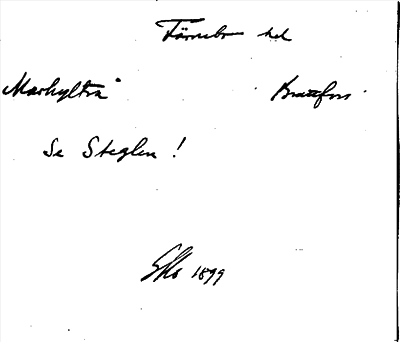 Färnebo hd
Markyltrå Brattfors
Se Steglen!
Eko 1899